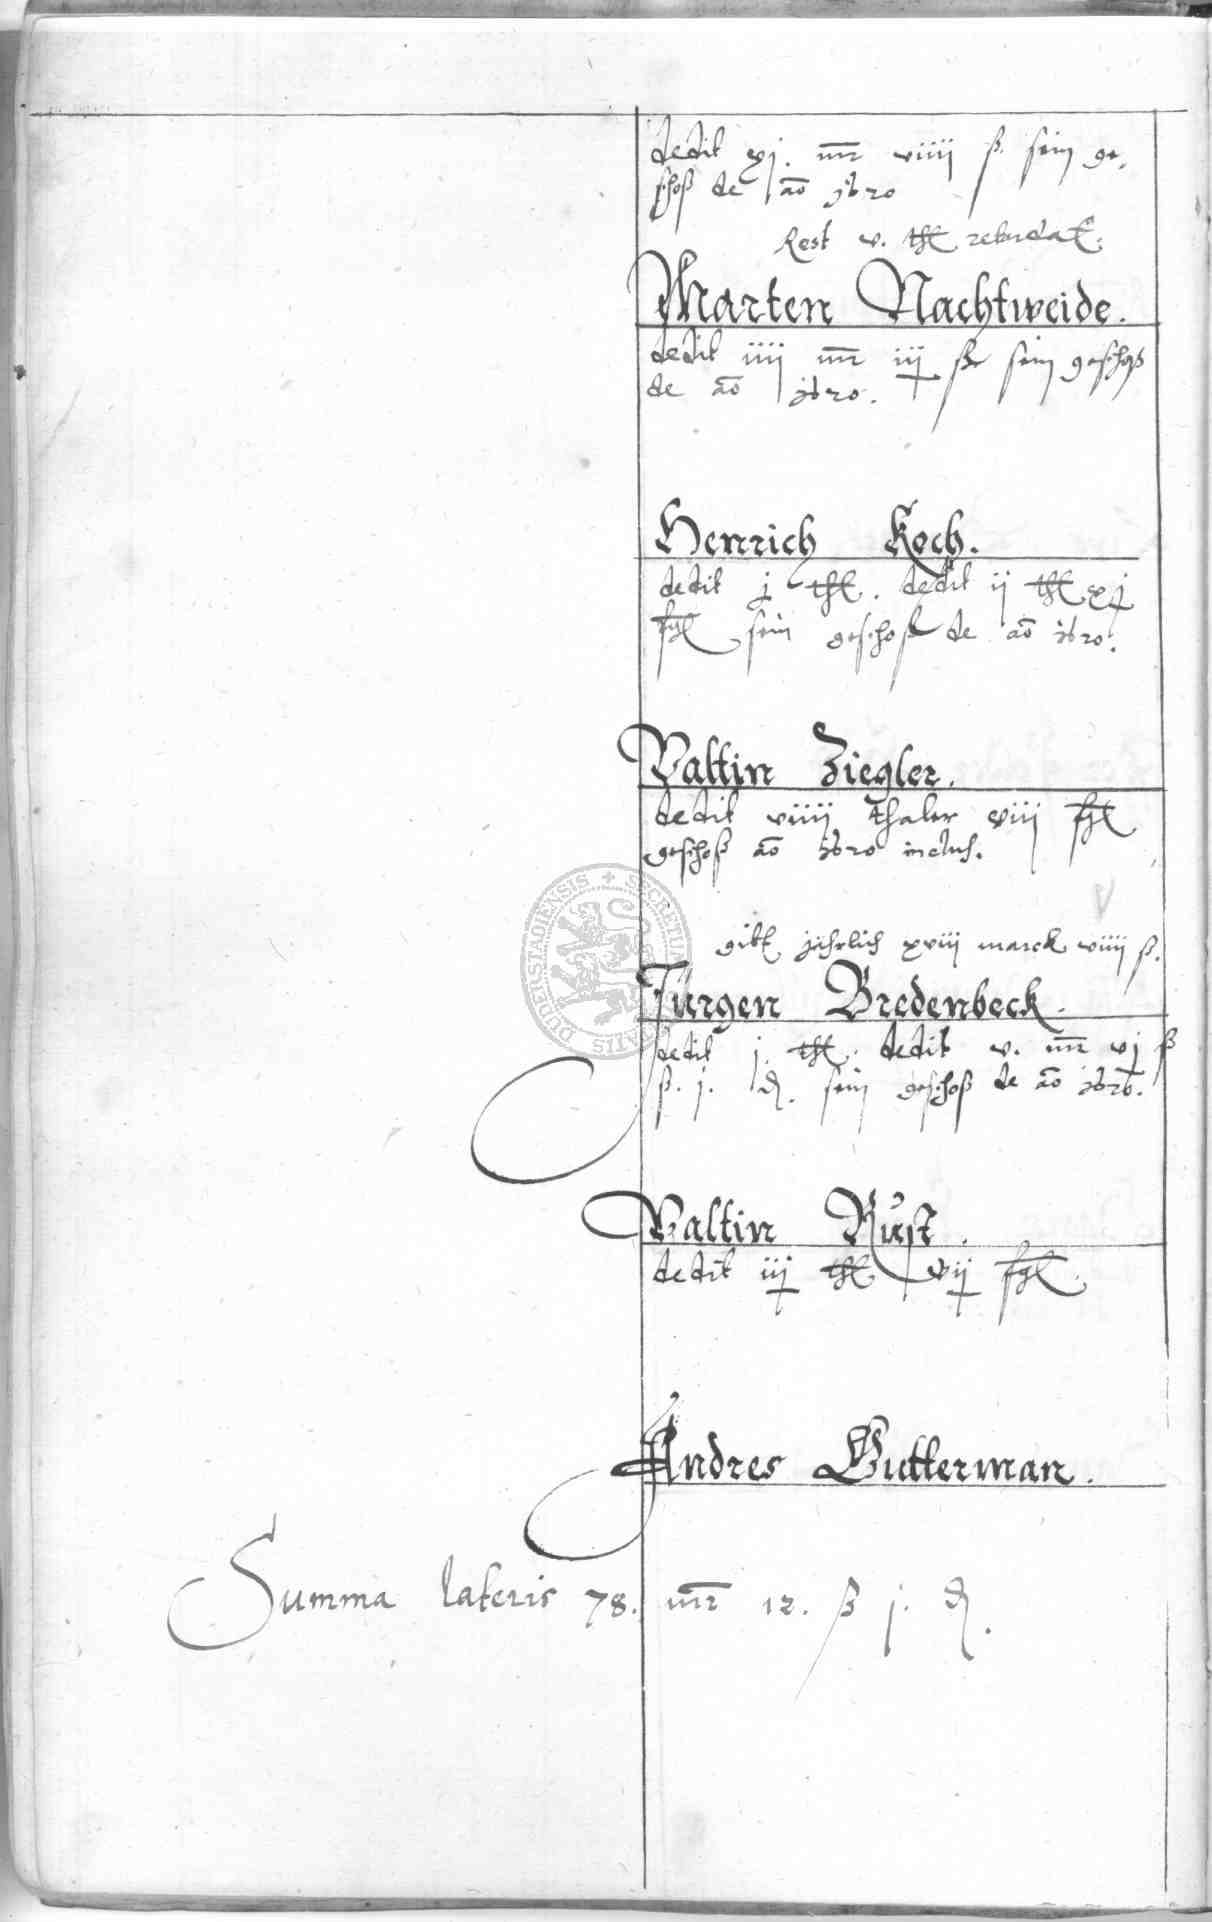 dedit xj. mr viiij ß sein ge,
schoß de ao 1620
Rest v. thl retardat.
Marten Nachtweide.
dedit iiij mr iij ß sein geschoß
de ao 1620.
Henrich Koch.
dedit j thl. dedit ij thl xj
ßgl sein geschoß de ao 1620.
Valtin Ziegler.
dedit viiij thaler viij ßgl
geschoß ao 1620 inclus.
gibt jährlich xviij marck viiij ß.
Jürgen Bredenbeck.
dedit j. thl. dedit v. mr vj ß
ß. j. d. sein geschoß de ao 1620.
Valtin Rust.
dedit iij thl vij ßgl.
Andres Gutterman.
Summa lateris 78. mr 12. ß j. d.
SECRETUM DUDERSTADIENSIS